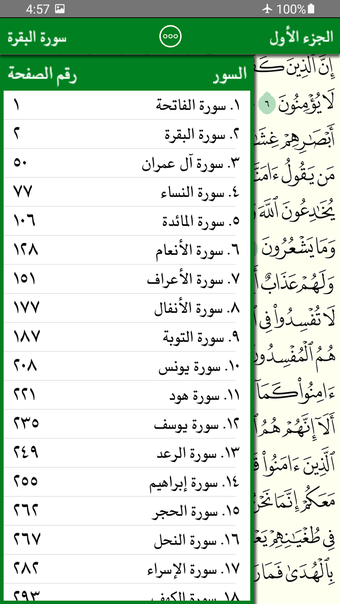 4:57
100%
الجزء الأول
سورة البقرة
السور رقم الصفحة
١. سورة الفاتحة ١
٢. سورة البقرة ٢
٣. سورة آل عمران ٥٠
٤. سورة النساء ٧٧
٥. سورة المائدة ١٠٦
٦. سورة الأنعام ١٢٨
٧. سورة الأعراف ١٥١
٨. سورة الأنفال ١٧٧
٩. سورة التوبة ١٨٧
١٠. سورة يونس ٢٠٨
١١. سورة هود ٢٢١
١٢. سورة يوسف ٢٣٥
١٣. سورة الرعد ٢٤٩
١٤. سورة إبراهيم ٢٥٥
١٥. سورة الحجر ٢٦٢
١٦. سورة النحل ٢٦٧
١٧. سورة الإسراء ٢٨٢
١٨. سورة الكهف ٢٩٣
إِنَّ الَّذِينَ
لَا يُؤْمِنُونَ ٦
أَبْصَارِهِمْ
مَن يَقُولُ
يُخَادِعُونَ اللَّهَ
وَمَا يَشْعُرُونَ
وَلَهُمْ عَذَابٌ
لَا تُفْسِدُوا فِي
هُمُ الْمُفْسِدُونَ
ءَامِنُوا كَمَا
أَلَا إِنَّهُمْ هُمُ
الَّذِينَ ءَامَنُوا
مَعَكُمْ إِنَّمَا نَحْنُ
فِي طُغْيَانِهِمْ
بِالْهُدَىٰ فَمَا